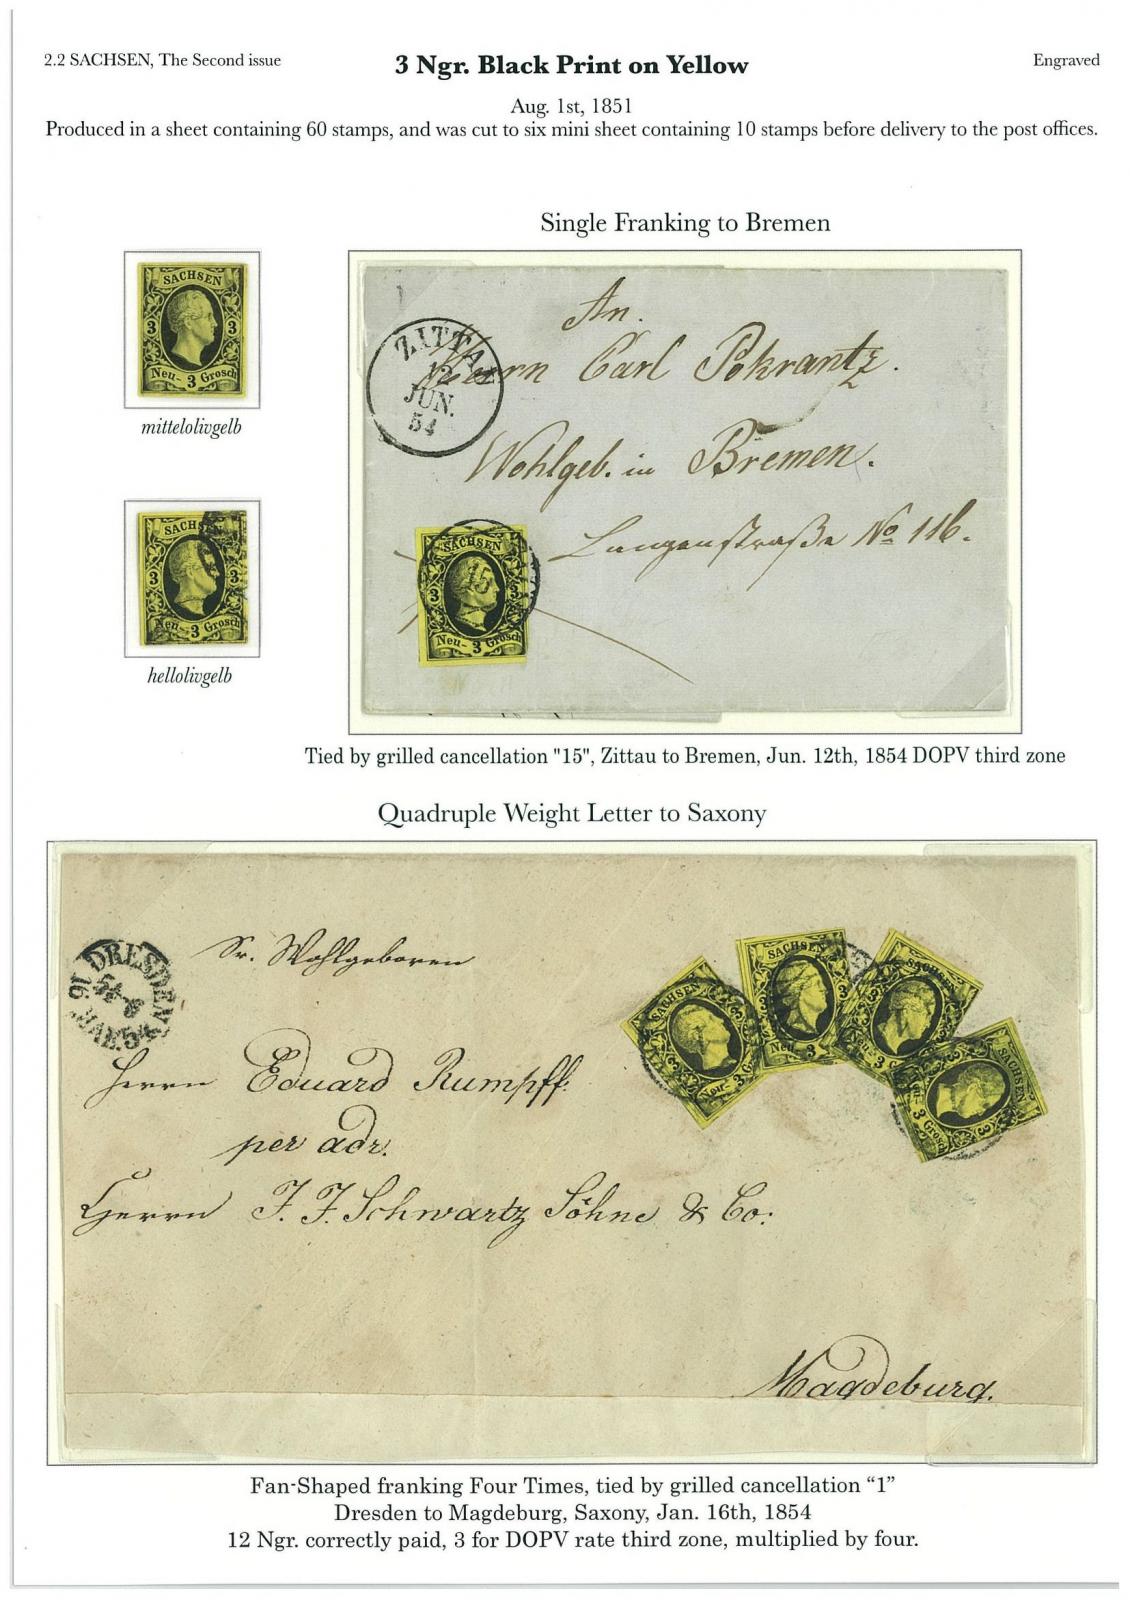 2.2 SACHSEN, The Second issue
3 Ngr. Black Print on Yellow
Engraved
Aug. 1st, 1851
Produced in a sheet containing 60 stamps, and was cut to six mini sheet containing 10 stamps before delivery to the post offices.
Single Franking to Bremen
SACHSEN
3 3
Neu- 3 Grosch
mittelolivgelb
SACHSEN
3 3
Neu- 3 Grosch
hellolivgelb
ZITTAU
12
JUN.
54
An.
Herrn Carl Pokrantz.
Wohlgeb. in Bremen.
Langenstraße No 116.
SACHSEN
3 3
Neu- 3 Grosch
Tied by grilled cancellation "15", Zittau to Bremen, Jun. 12th, 1854 DOPV third zone
Quadruple Weight Letter to Saxony
DRESDEN
16
Sr. Wohlgeboren
Herrn Eduard Rumpff.
per adr.
Herrn J. F. Schwartz Söhne & Co:
Magdeburg.
SACHSEN
Neu- 3
SACHSEN
3
Neu-
SACHSEN
Neu- 3 G
SACHSEN
3 Grosch
Fan-Shaped franking Four Times, tied by grilled cancellation “1”
Dresden to Magdeburg, Saxony, Jan. 16th, 1854
12 Ngr. correctly paid, 3 for DOPV rate third zone, multiplied by four.